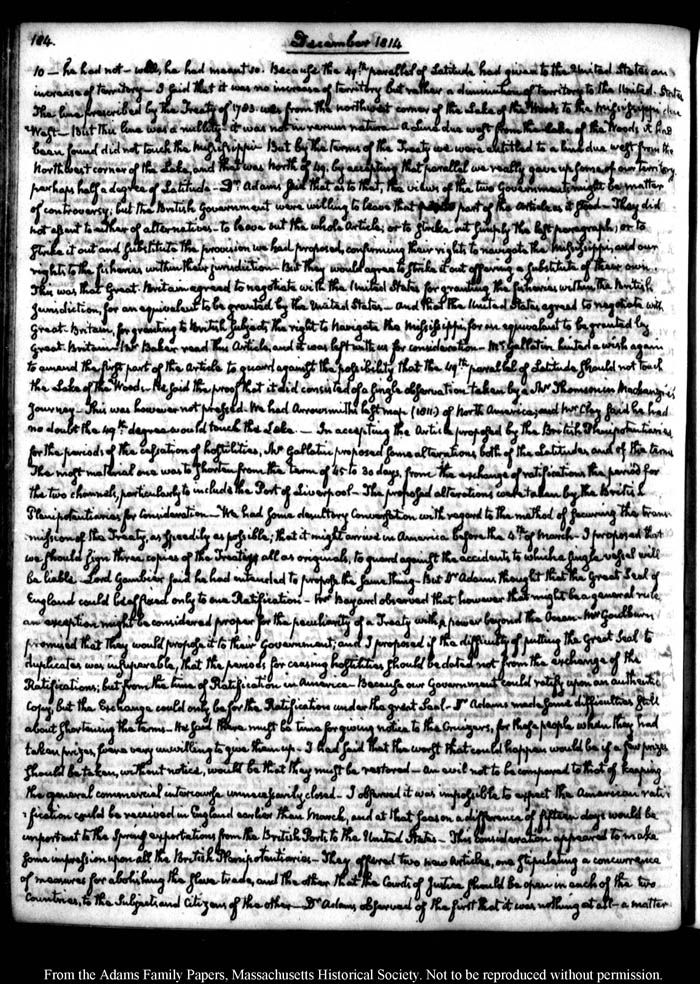 184.
December 1814
10 — he had not — well, he had meant so. Because the 49th parallel of Latitude had given to the United States an
increase of territory — I said that it was no increase of territory but rather a diminution of territory to the United States
The line prescribed by the Treaty of 1783 was from the northwest corner of the Lake of the Woods to the Mississippi due
West — But this line was a nullity — it was not in rerum natura — A line due west from the Lake of the Woods it had
been found did not touch the Mississippi — But by the terms of the Treaty we were entitled to a line due west from the
Northwest corner of the Lake, and that was North of 49. by accepting that parallel we really gave up some of our territory
perhaps half a degree of Latitude — Dr Adams said that as to that, the views of the two Governments might be matter
of controversy, but the British Government were willing to leave that part of the Article as it stood — They did
not assent to either of alternatives — to leave out the whole Article; or to strike out simply the last paragraph; or to
strike it out and substitute the provision we had proposed, confirming their rights to navigate the Mississippi, and our
rights to the fisheries within their jurisdiction — But they would agree to strike it out offering a substitute of their own.
This was that Great-Britain agreed to negotiate with the United States for granting the fisheries within the British
Jurisdiction, for an equivalent to be granted by the United States — And that the United States agreed to negotiate with
Great-Britain, for granting to British Subjects the right to Navigate the Mississippi for an equivalent to be granted by
Great-Britain — Mr Baker read this Article, and it was left with us for consideration — Mr Gallatin hinted a wish again
to amend the first part of the Article to guard against the possibility that the 49th parallel of Latitude should not touch
the Lake of the Woods. He said the proof that it did consisted of a single observation taken by a Mr Thomson in Mackenzie's
Journey — This was however not pressed. We had Arrowsmith's last map (1811) of North America; and Mr Clay said he had
no doubt the 49th degree would touch the Lake. — In accepting the Article proposed by the British Plenipotentiaries
for the periods of the cessation of hostilities, Mr Gallatin proposed some alterations both of the Latitudes, and of the terms
The most material one was to shorten from the term of 45 to 30 days, from the exchange of ratifications the period for
the two channels, particularly to include the Port of Liverpool — The proposed alterations were taken by the British
Plenipotentiaries for Consideration — We had some desultory Conversation with regard to the method of securing the trans-
mission of the Treaty, as speedily as possible; that it might arrive in America before the 4th of March — I proposed that
we should sign three copies of the Treaty all as originals, to guard against the accidents to which a single vessel will
be liable — Lord Gambier said he had intended to propose the same thing — But Dr Adams thought that the Great Seal of
England could be affixed only to one Ratification — Mr Bayard observed that however that might be a general rule,
an exception might be considered proper for the peculiarity of a Treaty with a power beyond the Ocean. Mr Goulburn
promised that they would propose it to their Government; and I proposed if the difficulty of putting the Great Seal to
duplicates was insuperable, that the periods for ceasing hostilities should be dated not from the exchange of the
Ratifications; but from the time of Ratification in America — Because our Government could ratify upon an authentic
Copy, but the Exchange could only be for the Ratification under the great Seal — Dr Adams made some difficulties still
about shortening the terms — He said there must be time for giving notice to the Cruizers, for those people when they had
taken prizes, were very unwilling to give them up — I had said that the worst that could happen would be if a few prizes
should be taken, without notice, would be that they must be restored — an evil not to be compared to that of keeping
the general commercial intercourse unnecessarily closed — I observed it was impossible to expect the American rati-
fication could be received in England earlier than March, and at that season a difference of fifteen days would be
important to the Spring exportations from the British Ports to the United States — This consideration appeared to make
some impression upon all the British Plenipotentiaries — They offered two new Articles, one stipulating a concurrence
of measures for abolishing the slave trade, and the other that the Courts of Justice should be open in each of the two
Countries, to the Subjects and Citizens of the other — Dr Adams observed of the first that it was nothing at all — a matter
From the Adams Family Papers, Massachusetts Historical Society. Not to be reproduced without permission.